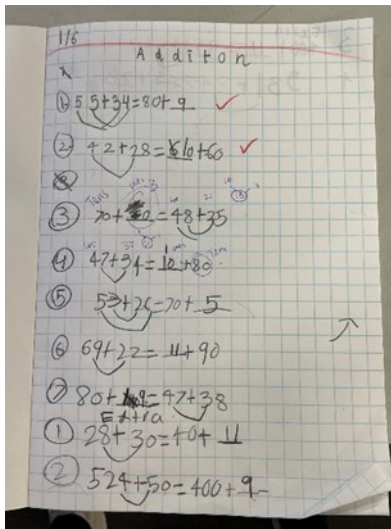 1/6
Additon
1 55+34=80+9
2 42+28=10+60
3 70+ =48+35
4 47+34=10+80
5 53+26=70+5
6 69+22=11+90
7 80+ =47+38
Extra
1 28+30=40+11
2 524+50=400+9